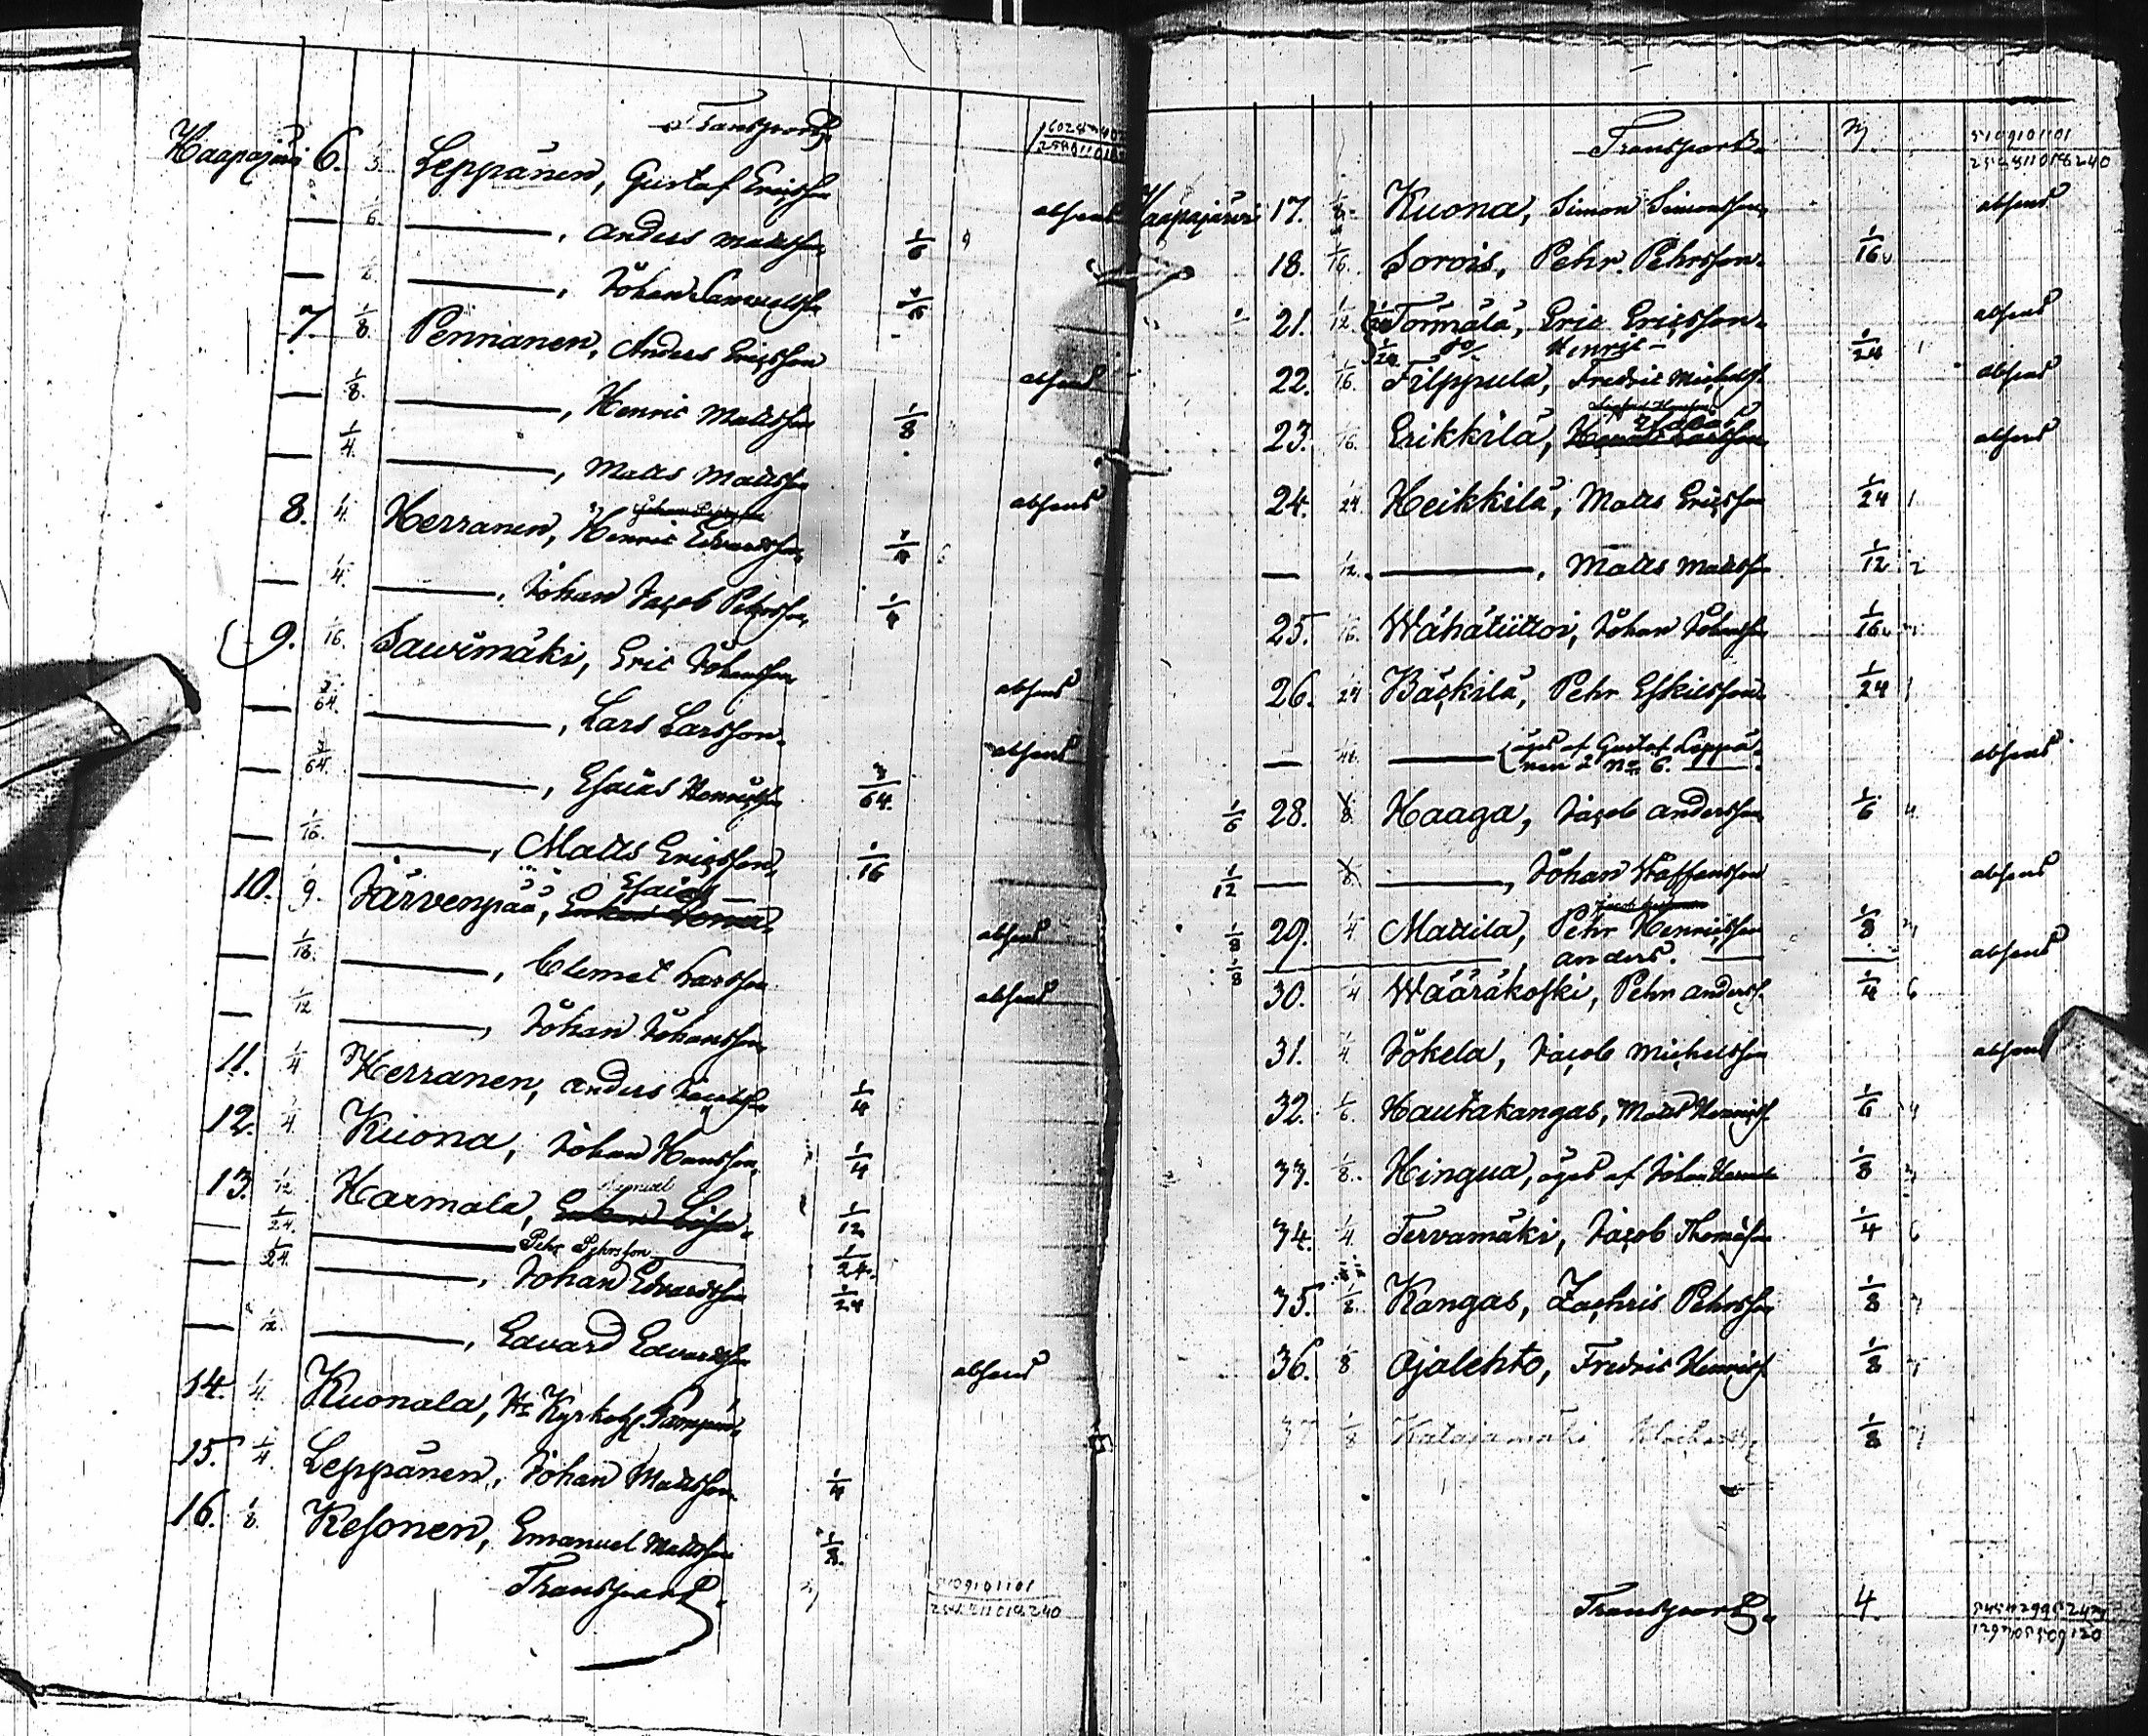 Transport
Haapajärvi 6. Leppänen, Gustaf Ericsson absens
— 1/6. —, Anders Mattsson 1/6
—, Johan Samuelsson
7. 1/8 Pennanen, Anders Ericsson absens
— 1/8. —, Henric Mattsson 1/8
— 1/4 —, Matts Mattsson absens
8. 1/4. Herranen, Henric Edvardsson
— 1/4. —, Johan Jacob Pehrsson
9. 1/16. Sawimäki, Eric Johansson absens
— 64. —, Lars Larsson absens
— 64. —, Esaias Henricsson 3/64.
— 1/16. —, Matts Ericsson 1/16
10. 1/9. Järvenpää, Esaias absens
— 1/18. —, Clemet Larsson absens
— 1/12 —, Johan Johansson
11. 1/4 Herranen, Anders Jacobsson 1/4
12. 1/4. Kuona, Johan Hansson 1/4
13. 1/12 Harmala, 1/12
— 1/24. — Pehr Pehrsson 1/24.
— 1/24. —, Johan Edvardsson 1/24
— 1/12. —, Edvard Edvardsson absens
14. 1/4. Kuonala, Hr Kyrkoh.
15. 1/4. Leppänen, Johan Mattsson 1/4
16. 1/8. Kesonen, Emanuel Mattsson 1/8.
Transport.
Transport. 3
Haapajärvi 17. 1/8. Kuona, Simon Simonsson absens
18. 1/16. Sorvis, Pehr Pehrsson 1/16
21. 1/12 1/24 Törmälä, Eric Ericsson absens
1/24 do Henric — 1/24 1
22. 1/16. Filppula, Fredric Michelss. absens
23. 1/16. Erikkilä, absens
24. 1/24. Heikkilä, Matts Ericsson 1/24 1
— 1/12. —, Matts Mattsson 1/12 2
25. 1/16. Wähätiittoi, Johan Johansson 1/16
26. 1/24 Bäckilä, Pehr Eskilsson 1/24 1
— 1/48. — äges af Gustaf Leppä-
nen å No 6. — absens
1/6 28. Haaga, Jacob Andersson 1/6 4
1/12 — —, Johan Staffansson absens
1/8 29. 1/4 Mattila, Pehr Henricsson 1/8 3
1/8 — Anders. — absens
30. 1/4 Wääräkoski, Pehr Anderss. 1/4 6
31. 1/4. Jokela, Jacob Michelsson absens
32. 1/6. Hautakangas, Matts Henricss. 1/6 4
33. 1/8. Hingua, äges af Johan 1/8 3
34. 1/4. Tervamäki, Jacob Thomasson 1/4 6
35. 1/8. Kangas, Zachris Pehrsson 1/8 3
36. 1/8 Ojalehto, Fredric Henricss. 1/8 3
37 1/8 Katajamäki 1/8 3
Transport. 4.